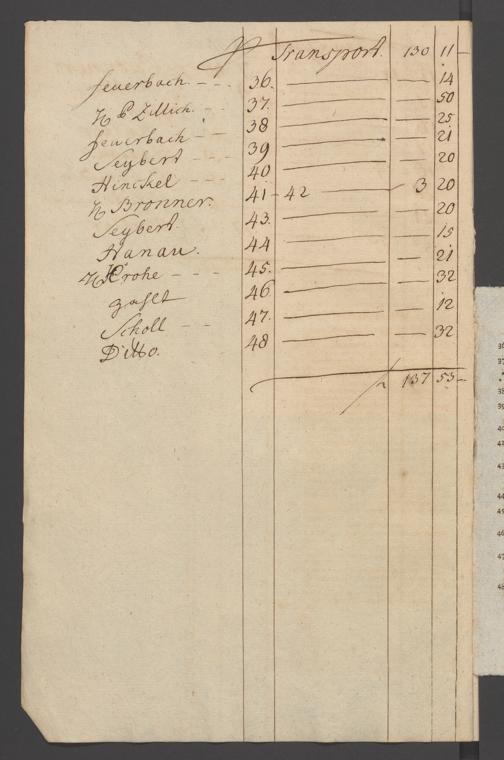 Transport. 130 11 –
feuerbach. – – – 36. — — 14
H P Zillich. – – 37. — — 50
feuerbach – – 38 — — 25
Seybert – – – 39 — — 21
Hinckel – – – 40 — — 20
H Bronner. 41 – 42 — 3 20
Seybert. 43. — — 20
Hanau. 44 — — 15
H Krohe – – – 45. — — 21
46 — — 32
Scholl – – 47. — — 12
Ditto. 48 — — 32
137 53 –
36
37
38
39
40
42
43
44
45
46
47
48